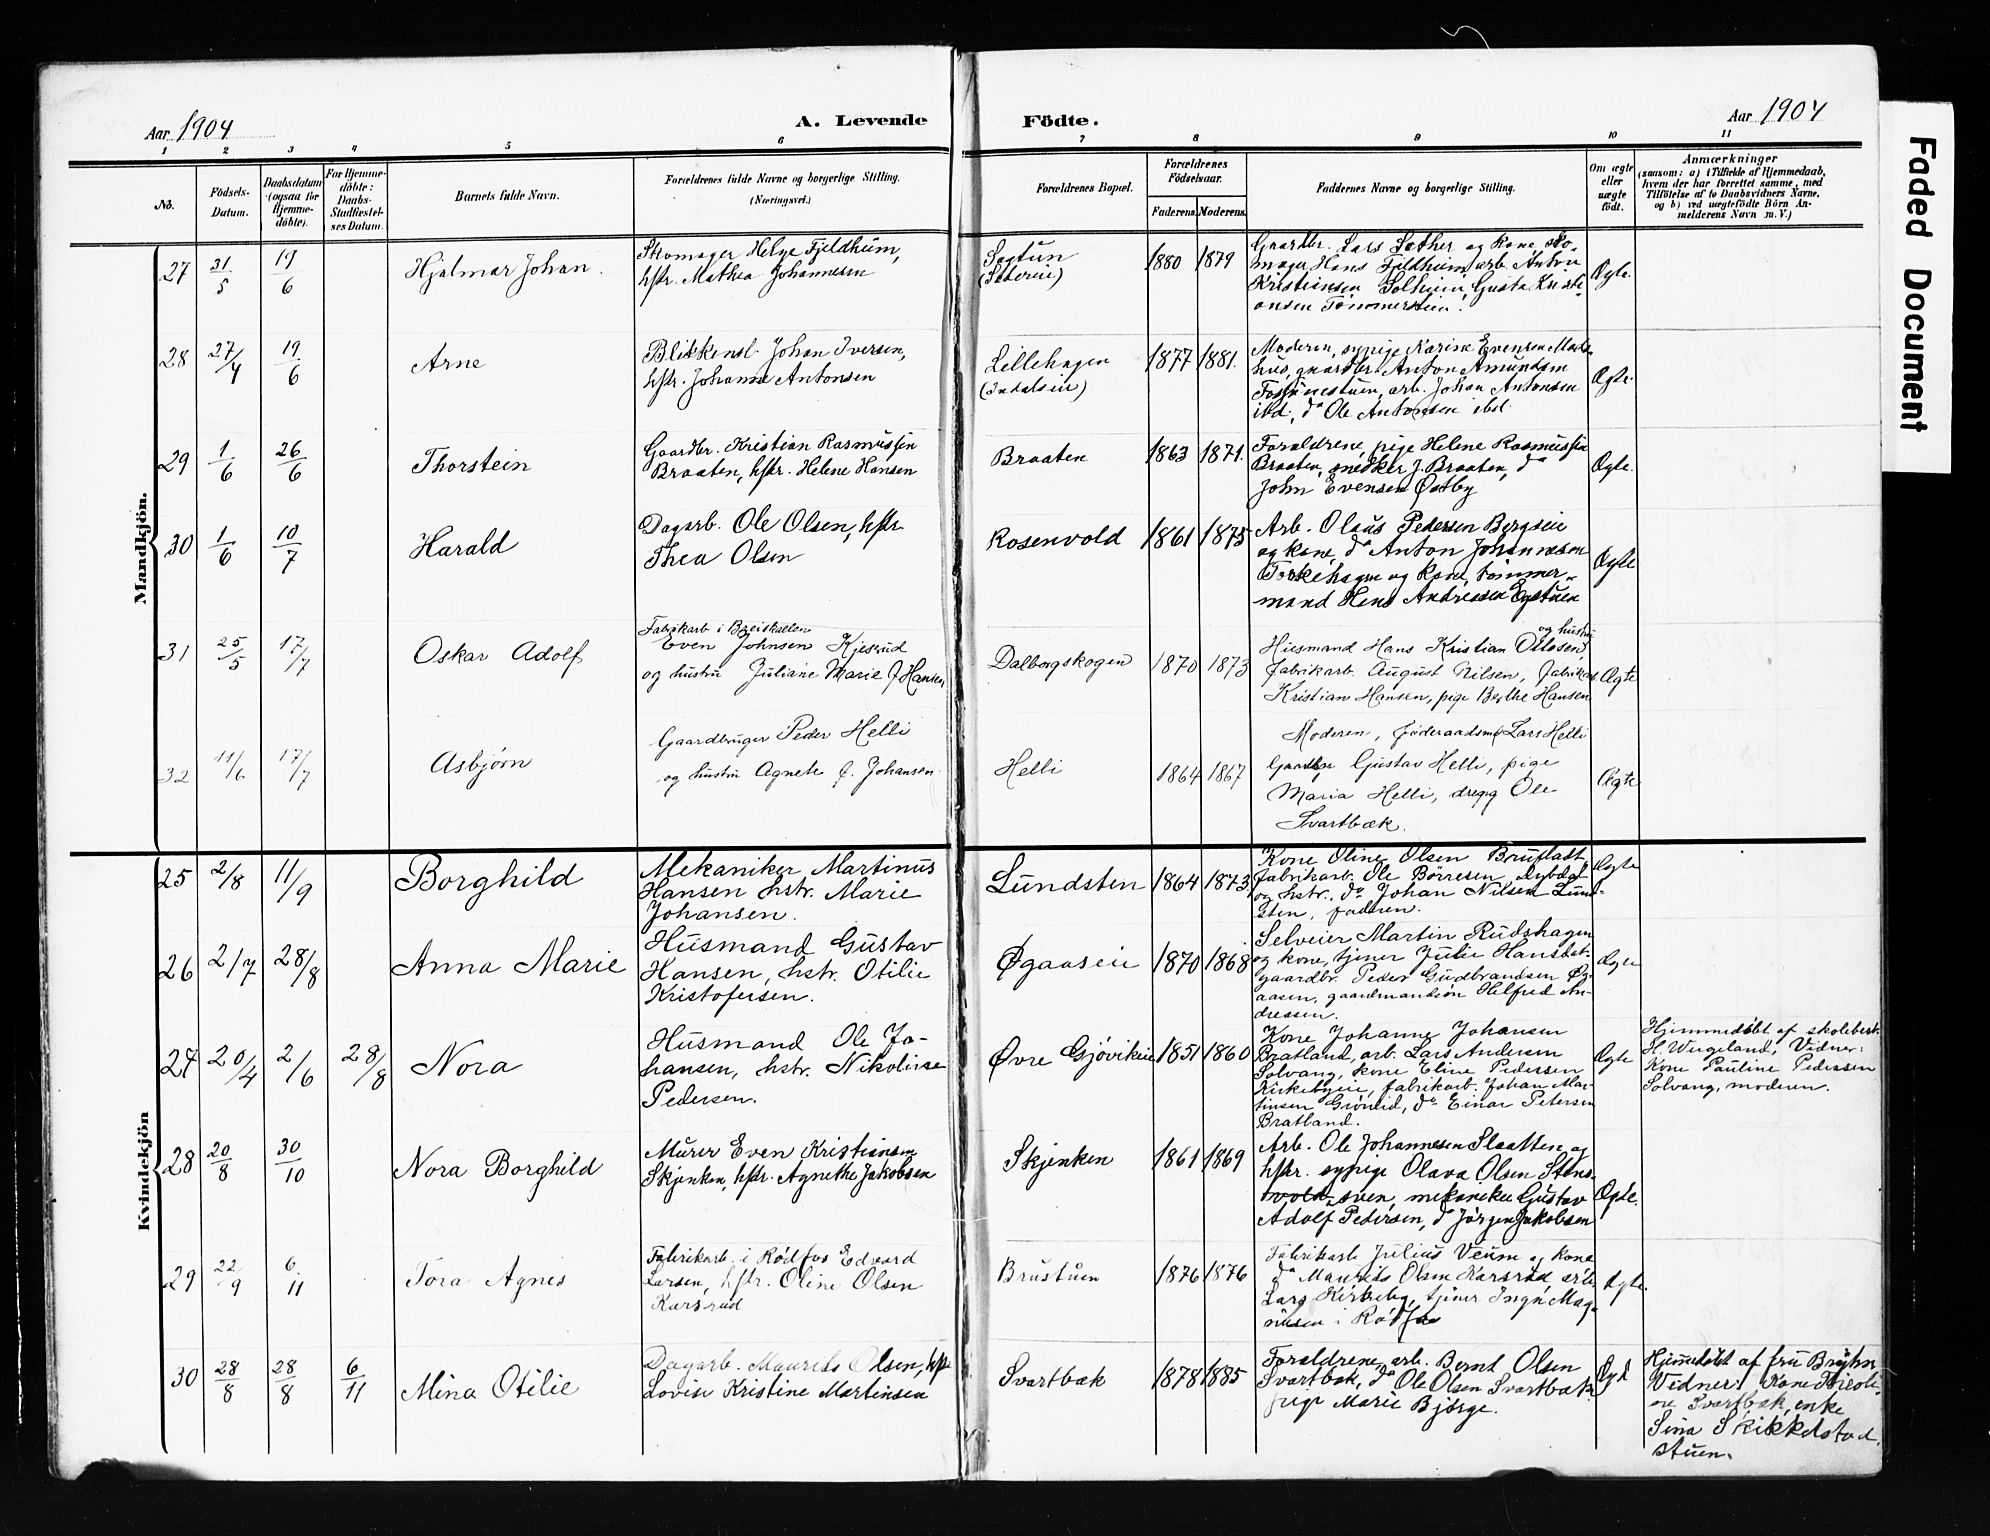 Aar 1904
A. Levende
Födte.
Aar 1904
Faded Document
1 2 3 4 5 6 7 8 9 10 11
No.
Födsels-
Datum.
Daabsdatum
(ogsaa for
Hjemme-
döbte).
For Hjemme-
döbte:
Daabs-
Stadfæstel-
ses Datum.
Barnets fulde Navn.
Forældrenes fulde Navne og borgerlige Stilling.
(Næringsvei.)
Forældrenes Bopæl.
Forældrenes
Födselsaar.
Faderens. Moderens.
Faddernes Navne og borgerlige Stilling.
Om ægte
eller
uægte
födt.
Anmærkninger
(saasom: a) i Tilfælde af Hjemmedaab,
hvem der har forrettet samme, med
Tilföielse af to Daabsvidners Navne.
og b) ved uægtefödte Börn An-
melderens Navn m. V.)
Mandkjön.
27 31/5 19/6
Hjalmar Johan.
Skomager Helge Fjeldheim,
hstr. Mathea Johannesen
Sagtun
1880 1879
Gaardbr. Lars Sæther og kone, sko-
mager Hans Fjeldheim, arb. Anton
Kristiansen Solheim, Gusta Kristi-
ansen
Ægte
28 27/4 19/6
Arne
Blikkensl. Johan Iversen,
hstr. Johanne Antonsen
Lillehagen
1877 1881.
Moderen, sypige Karine Evensen
hus, gaardbr. Anton Amundsen
arb. Johan Antonsen
ibd., do Ole Antonsen ibd.
Ægte.
29 1/6 26/6
Thorstein
Gaardbr. Kristian Rasmussen
Braaten, hstr. Helene Hansen
Braaten
1863 1871.
Forældrene, pige Helene Rasmussen
Braaten, snedker J. Braaten, do
John Evensen Østby
Ægte.
30 1/6 10/7
Harald
Dagarb. Ole Olsen, hstr.
Thea Olsen
Rosenvold
1861 1875
Arb. Olaus Pedersen Bergseie
og kone, do Anton Johannesen
og kone, tømmer-
mand Hans Andreasen
Ægte
31 25/5 17/7
Oskar Adolf
Fabrikarb. i Breiskallen
Even Johnsen Kjesrud
og hustru Juliane Marie f. Hansen
Dalborgskogen
1870 1873
og hustru
Husmand Hans Kristian Ottosen,
fabrikarb. August Nilsen, fabrikarb
Kristian Hansen, pige Berthe Hansen
Ægte
32 11/6 17/7
Asbjørn
Gaardbruger Peder Helli
og hustru Agnete f. Johansen.
Helli
1864 1867
Moderen, føderaadsm. Lars Helli
Gaardbr Gustav Helli, pige
Maria Helli, dreng Ole
Svartbæk.
Ægte
Kvindekjön
25 2/8 11/9
Borghild
Mekaniker Martinus
Hansen hstr. Marie
Johansen.
Lundsten
1864 1873
Kone Oline Olsen Brufladt
fabrikarb. Ole Børresen Nybdal
og hstr., do Johan Nilsen Lund-
sten, faderen.
Ægte
26 2/7 28/8
Anna Marie
Husmand Gustav
Hansen, hstr. Otilie
Kristofersen.
Øgaaseie
1870 1868
Selveier Martin Rudshagen
og kone, tjener Julie Hansbak-
gaardbr. Peder Gudbrandsen Øg-
aasen, gaardmandsøn Helfred An-
dressen.
Ægte
27 20/4 2/6 28/8
Nora
Husmand Ole Jo-
hansen, hstr. Nikoline
Pedersen.
Øvre Gjøvikeie
1851 1860
Kone Johanne Johansen
Bratland, arb. Lars Andersen
Solvang, kone Eline Pedersen
Kirkebyeie, fabrikarb. Johan Mar-
tinsen Grønlid, do Einar Petersen
Bratland.
Ægte
Hjemmedøbt af skolebest.
H. Wergeland, Vidner:
Kone Pauline Pedersen
Solvang, moderen.
28 20/8 30/10
Nora Borghild
Murer Even Kristiansen
Skjenken, hstr. Agnethe Jakobsen
Skjenken
1861 1869
Arb. Ole Johannesen Slaatten og
hstr. sypige Olava Olsen Stens-
sven, mekaniker Gustav
Adolf Pedersen, do Jørgen Jakobsen
Ægte.
29 22/9 6/11
Tora Agnes
Fabrikarb. i Rødfos Edvard
Larsen, hstr. Oline Olsen
Karsrud
Brustuen
1876 1876
Fabrikarb Julius Veum og kone
do Maurits Olsen Karsrud arb.
Lars Kirkeby, tjener Inga Mag-
nusen i Rødfos
Ægte.
30 28/8 28/8 6/11
Mina Otilie
Dagarb. Maurits Olsen, hstr
Lovise Kristine Martinsen
Svartbæk
1878 1885
Forældrene, arb. Bernt Olsen
Svartbæk, do Ole Olsen Svartbæk
pige Marie Bjørge.
Hjemmedøbt af fru Bruhn
Vidner: Kone Nicoli-
ne Svartbæk, enke
Sina Skikkelstad-
stuen.